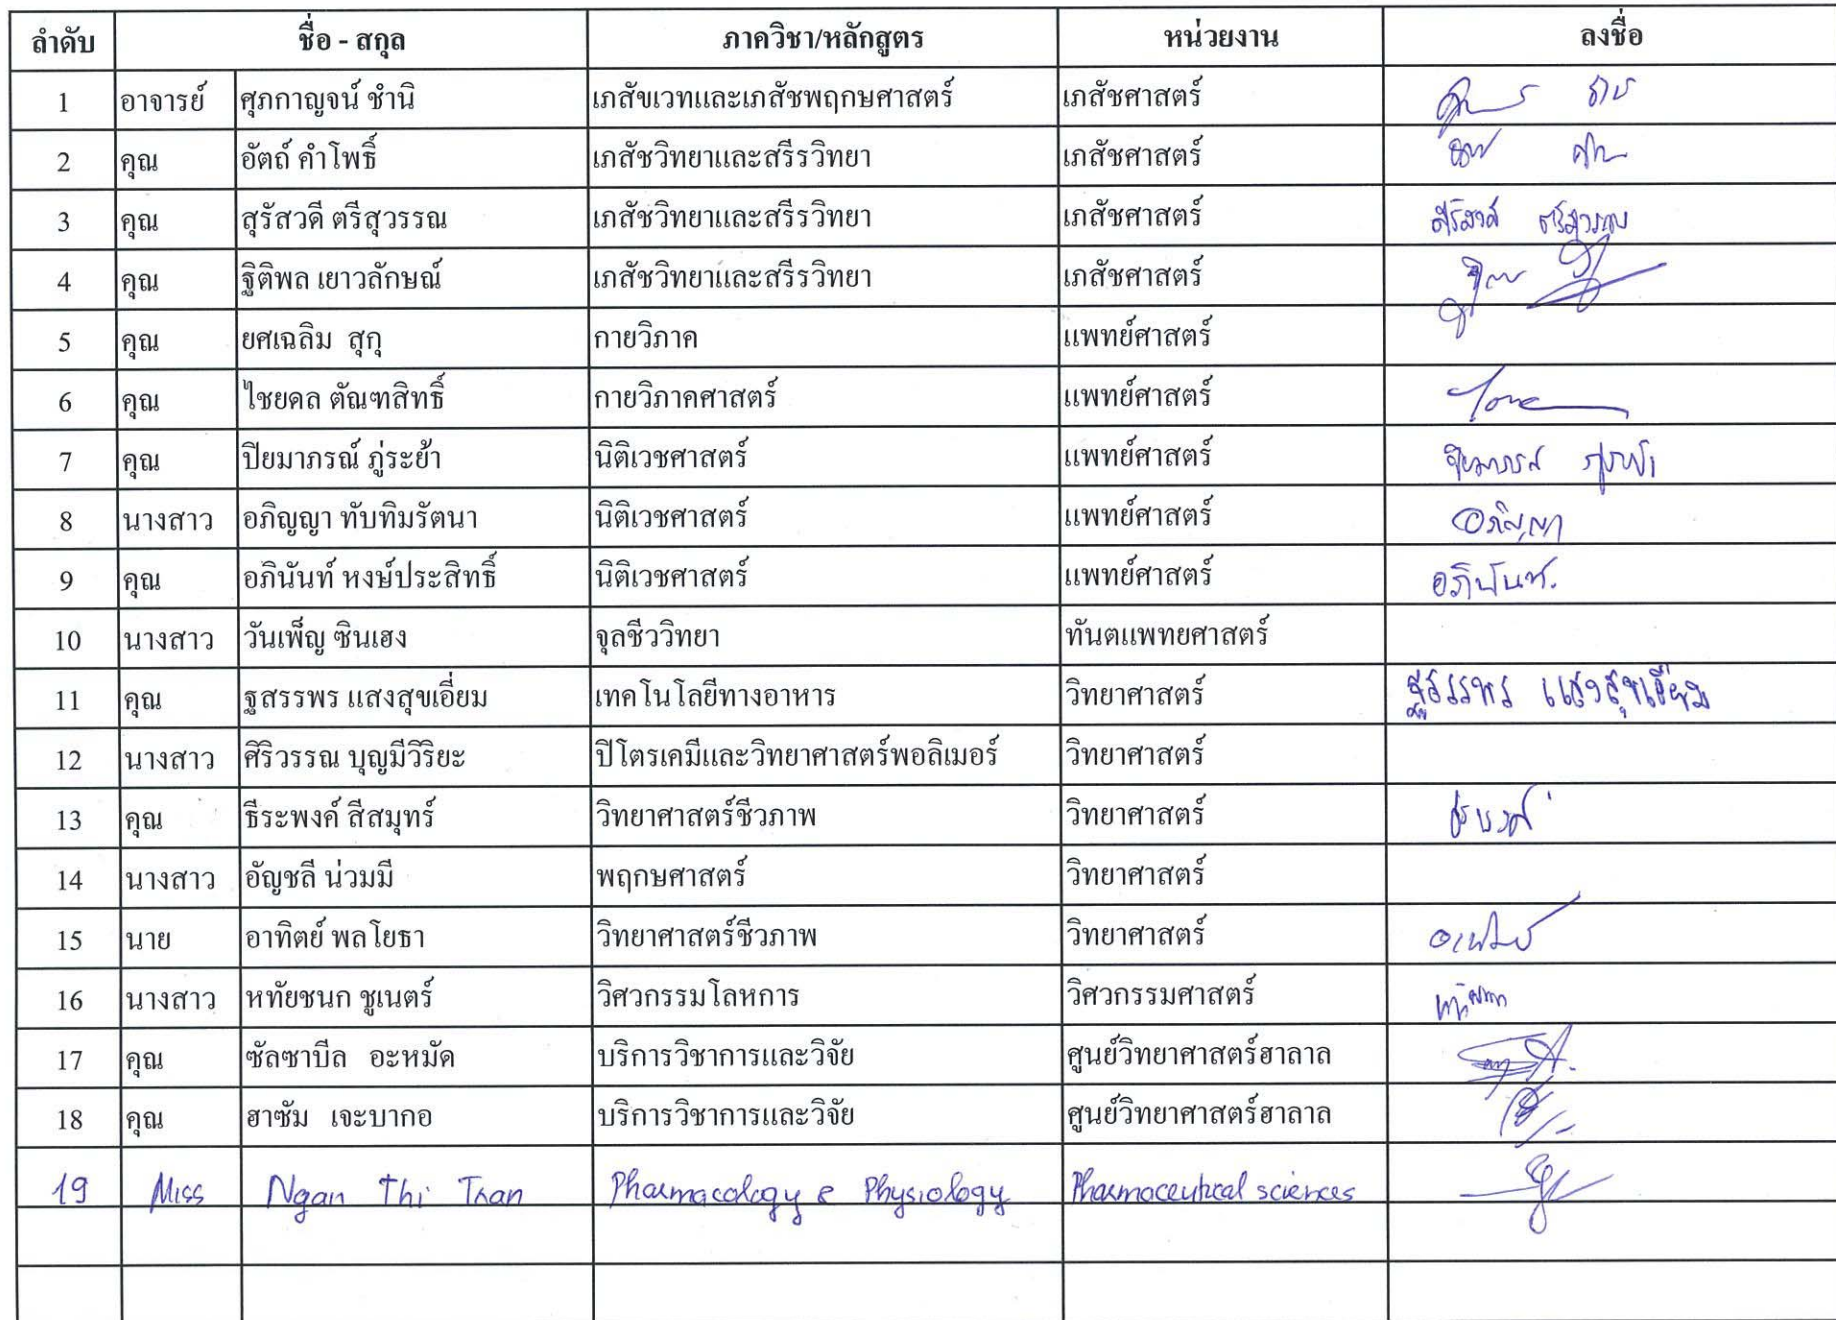 ลำดับ ชื่อ - สกุล ภาควิชา/หลักสูตร หน่วยงาน ลงชื่อ
1 อาจารย์ ศุภกาญจน์ ชำนิ เภสัขเวทและเภสัชพฤกษศาสตร์ เภสัชศาสตร์
2 คุณ อัตถ์ คำโพธิ์ เภสัชวิทยาและสรีรวิทยา เภสัชศาสตร์
3 คุณ สุรัสวดี ตรีสุวรรณ เภสัชวิทยาและสรีรวิทยา เภสัชศาสตร์
4 คุณ ฐิติพล เยาวลักษณ์ เภสัชวิทยาและสรีรวิทยา เภสัชศาสตร์
5 คุณ ยศเฉลิม สุกุ กายวิภาค แพทย์ศาสตร์
6 คุณ ไชยดล ตัณฑสิทธิ์ กายวิภาคศาสตร์ แพทย์ศาสตร์
7 คุณ ปิยมาภรณ์ ภู่ระย้า นิติเวชศาสตร์ แพทย์ศาสตร์
8 นางสาว อภิญญา ทับทิมรัตนา นิติเวชศาสตร์ แพทย์ศาสตร์ อภิญญา
9 คุณ อภินันท์ หงษ์ประสิทธิ์ นิติเวชศาสตร์ แพทย์ศาสตร์ อภินันท์.
10 นางสาว วันเพ็ญ ซินเฮง จุลชีววิทยา ทันตแพทยศาสตร์
11 คุณ ฐสรรพร แสงสุขเอี่ยม เทคโนโลยีทางอาหาร วิทยาศาสตร์ ฐสรรพร แสงสุขเอี่ยม
12 นางสาว ศิริวรรณ บุญมีวิริยะ ปิโตรเคมีและวิทยาศาสตร์พอลิเมอร์ วิทยาศาสตร์
13 คุณ ธีระพงค์ สีสมุทร์ วิทยาศาสตร์ชีวภาพ วิทยาศาสตร์
14 นางสาว อัญชลี น่วมมี พฤกษศาสตร์ วิทยาศาสตร์
15 นาย อาทิตย์ พลโยธา วิทยาศาสตร์ชีวภาพ วิทยาศาสตร์
16 นางสาว หทัยชนก ชูเนตร์ วิศวกรรมโลหการ วิศวกรรมศาสตร์
17 คุณ ซัลซาบีล อะหมัด บริการวิชาการและวิจัย ศูนย์วิทยาศาสตร์ฮาลาล
18 คุณ ฮาซัม เจะบากอ บริการวิชาการและวิจัย ศูนย์วิทยาศาสตร์ฮาลาล
19 Miss Ngan Thi Tran Pharmacology & Physiology Pharmaceutical sciences